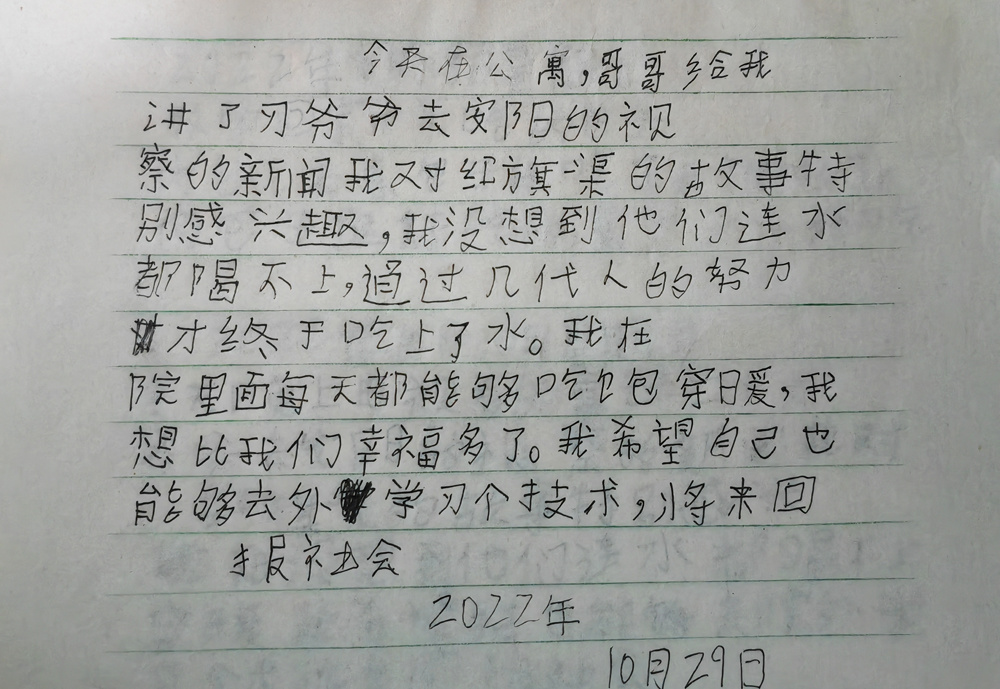 今天在公寓,哥哥给我
讲了刃爷爷去安阳的视
察的新闻我对红旗渠的故事特
别感兴趣,我没想到他们连水
都喝不上,通过几代人的努力
才终于吃上了水。我在
院里面每天都能够吃包穿暖,我
想比我们幸福多了。我希望自己也
能够去外学刃个技术,将来回
报社会
2022年
10月29日